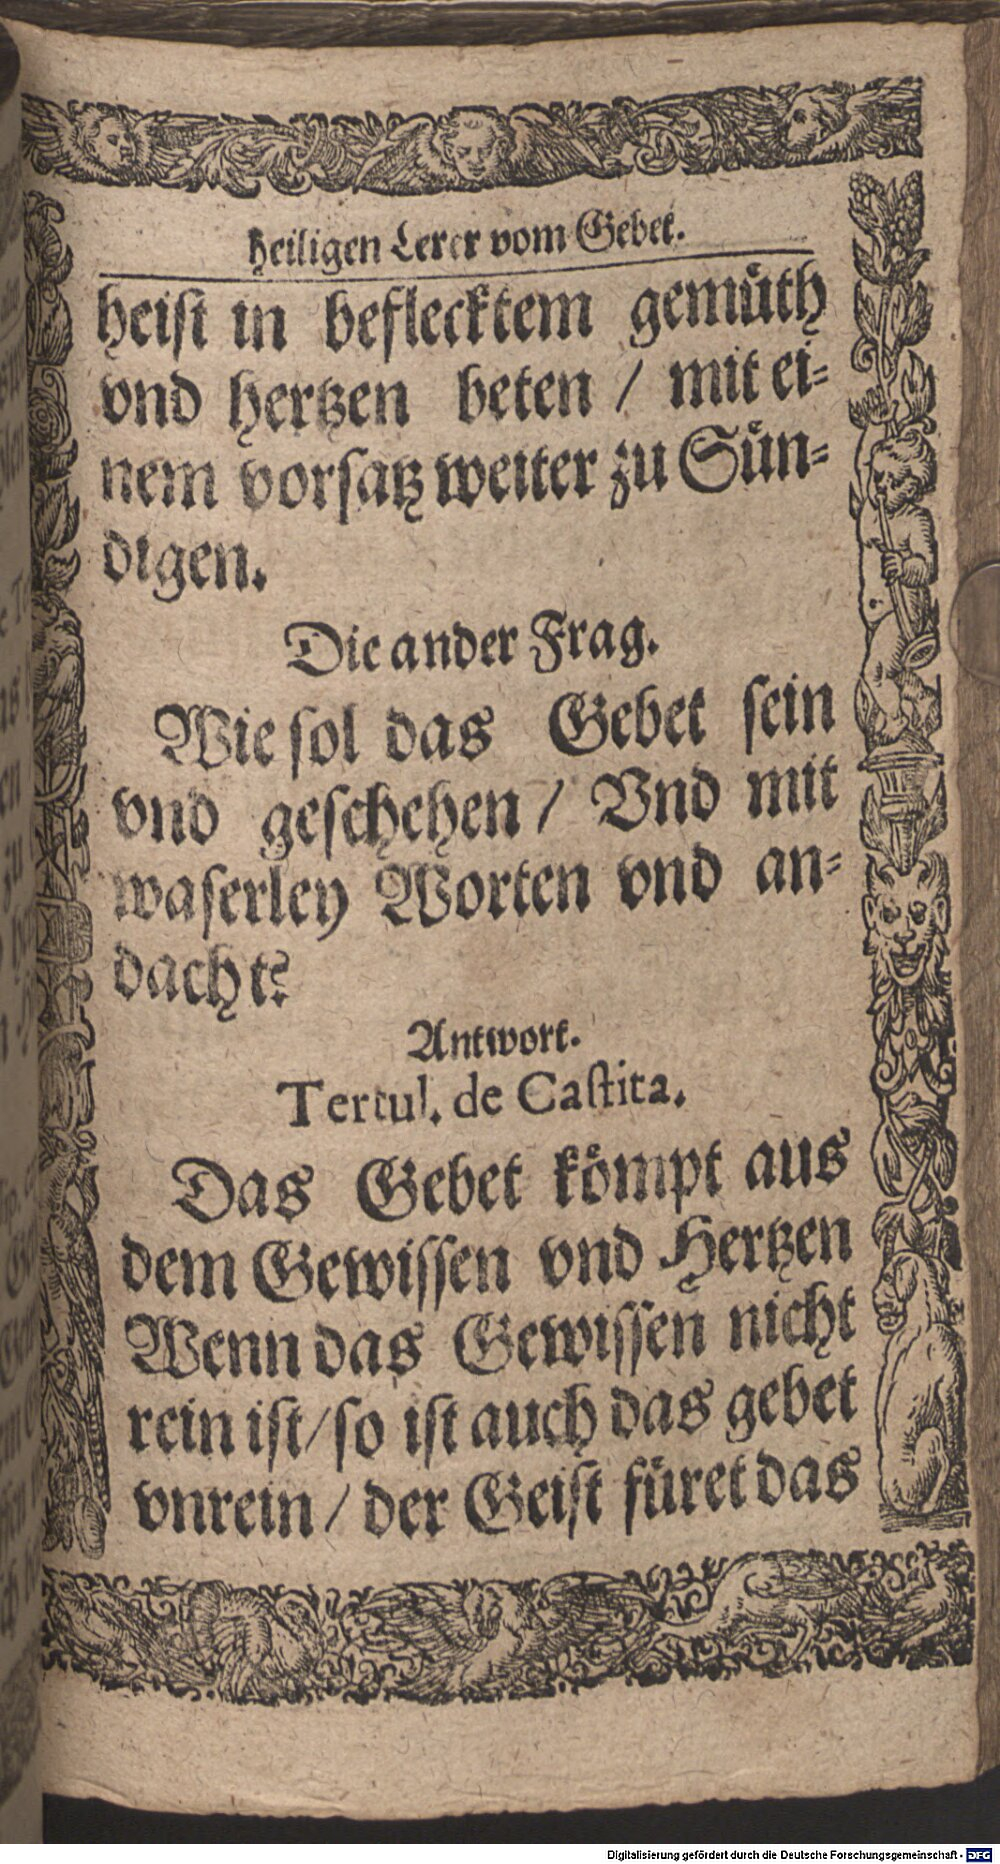 heiligen Lerer vom Gebet.
heist in beflecktem gemüth
vnd hertzen beten / mit ei⸗
nem vorsatz weiter zu Sün⸗
digen.
Die ander Frag.
Wie sol das Gebet sein
vnd geschehen / Vnd mit
waserley Worten vnd an⸗
dacht?
Antwort.
Tertul. de Castita.
Das Gebet kömpt aus
dem Gewissen vnd Hertzen
Wenn das Gewissen nicht
rein ist / so ist auch das gebet
vnrein / der Geist füret das
Digitalisierung gefördert durch die Deutsche Forschungsgemeinschaft - DFG